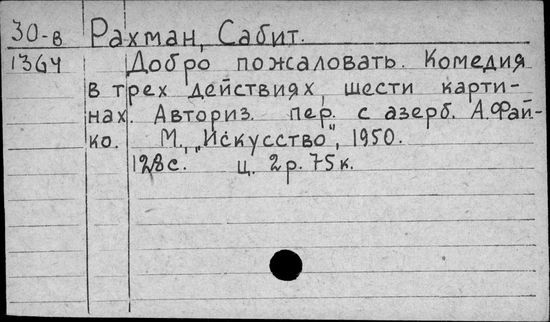 30-в Рахман, Сабит.
1364 Добро пожаловать. Комедия
в трех действиях, шести карти-
нах. Авториз. пер. с азерб. А.Фай-
ко. М., „Искусство", 1950.
128с. ц. 2р. 75к.